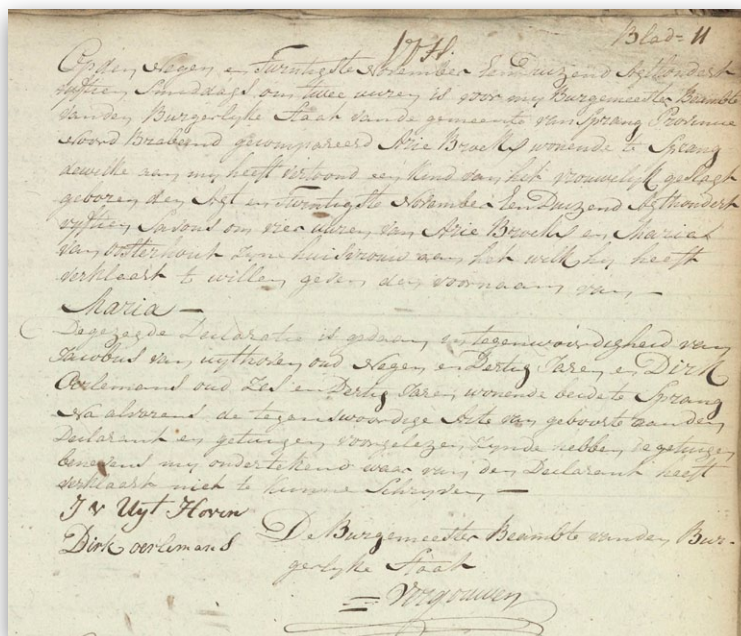 Blad= 11
Op den Negen en Twintigste November Een Duizend Agthondert
vyftien Smiddags om twee uuren is voor my Burgemeester Beambte
vanden Burgerlyke Staat vande gemeente van Sprang Provincie
Noord Braband gecompareerd Arie Broeks wonende te Sprang
dewelke aan my heeft vertoond een Kind van het vrouwelyk geslagt
geboren den Agt en Twintigste November Een Duizend Agthondert
vyftien Savons om vier uuren van Arie Broeks en Maria
van Oosterhout Zyne huisvrouw aan het welk hy heeft
verklaart te willen geven den voornaam van
Maria
De gezegde Declaratie is gedaan in tegenwoordigheid van
Jacobus van uythoven oud Negen en Dertig Jaren en Dirk
Oerlemans oud Zes en Dertig Jaren wonende beide te Sprang
Na alvorens de tegenswoordige Acte van geboorte aanden
Declarant en getuigen voorgelezen Zynde hebben de getuigen
benevens my ondertekend waar van den Declarant heeft
verklaart niet te Kunne Schryven
J V Uyt Hoven
Dirk oerlemans
De Burgemeester Beambte vanden Bur-
gerlyke Staat
Vergouwen